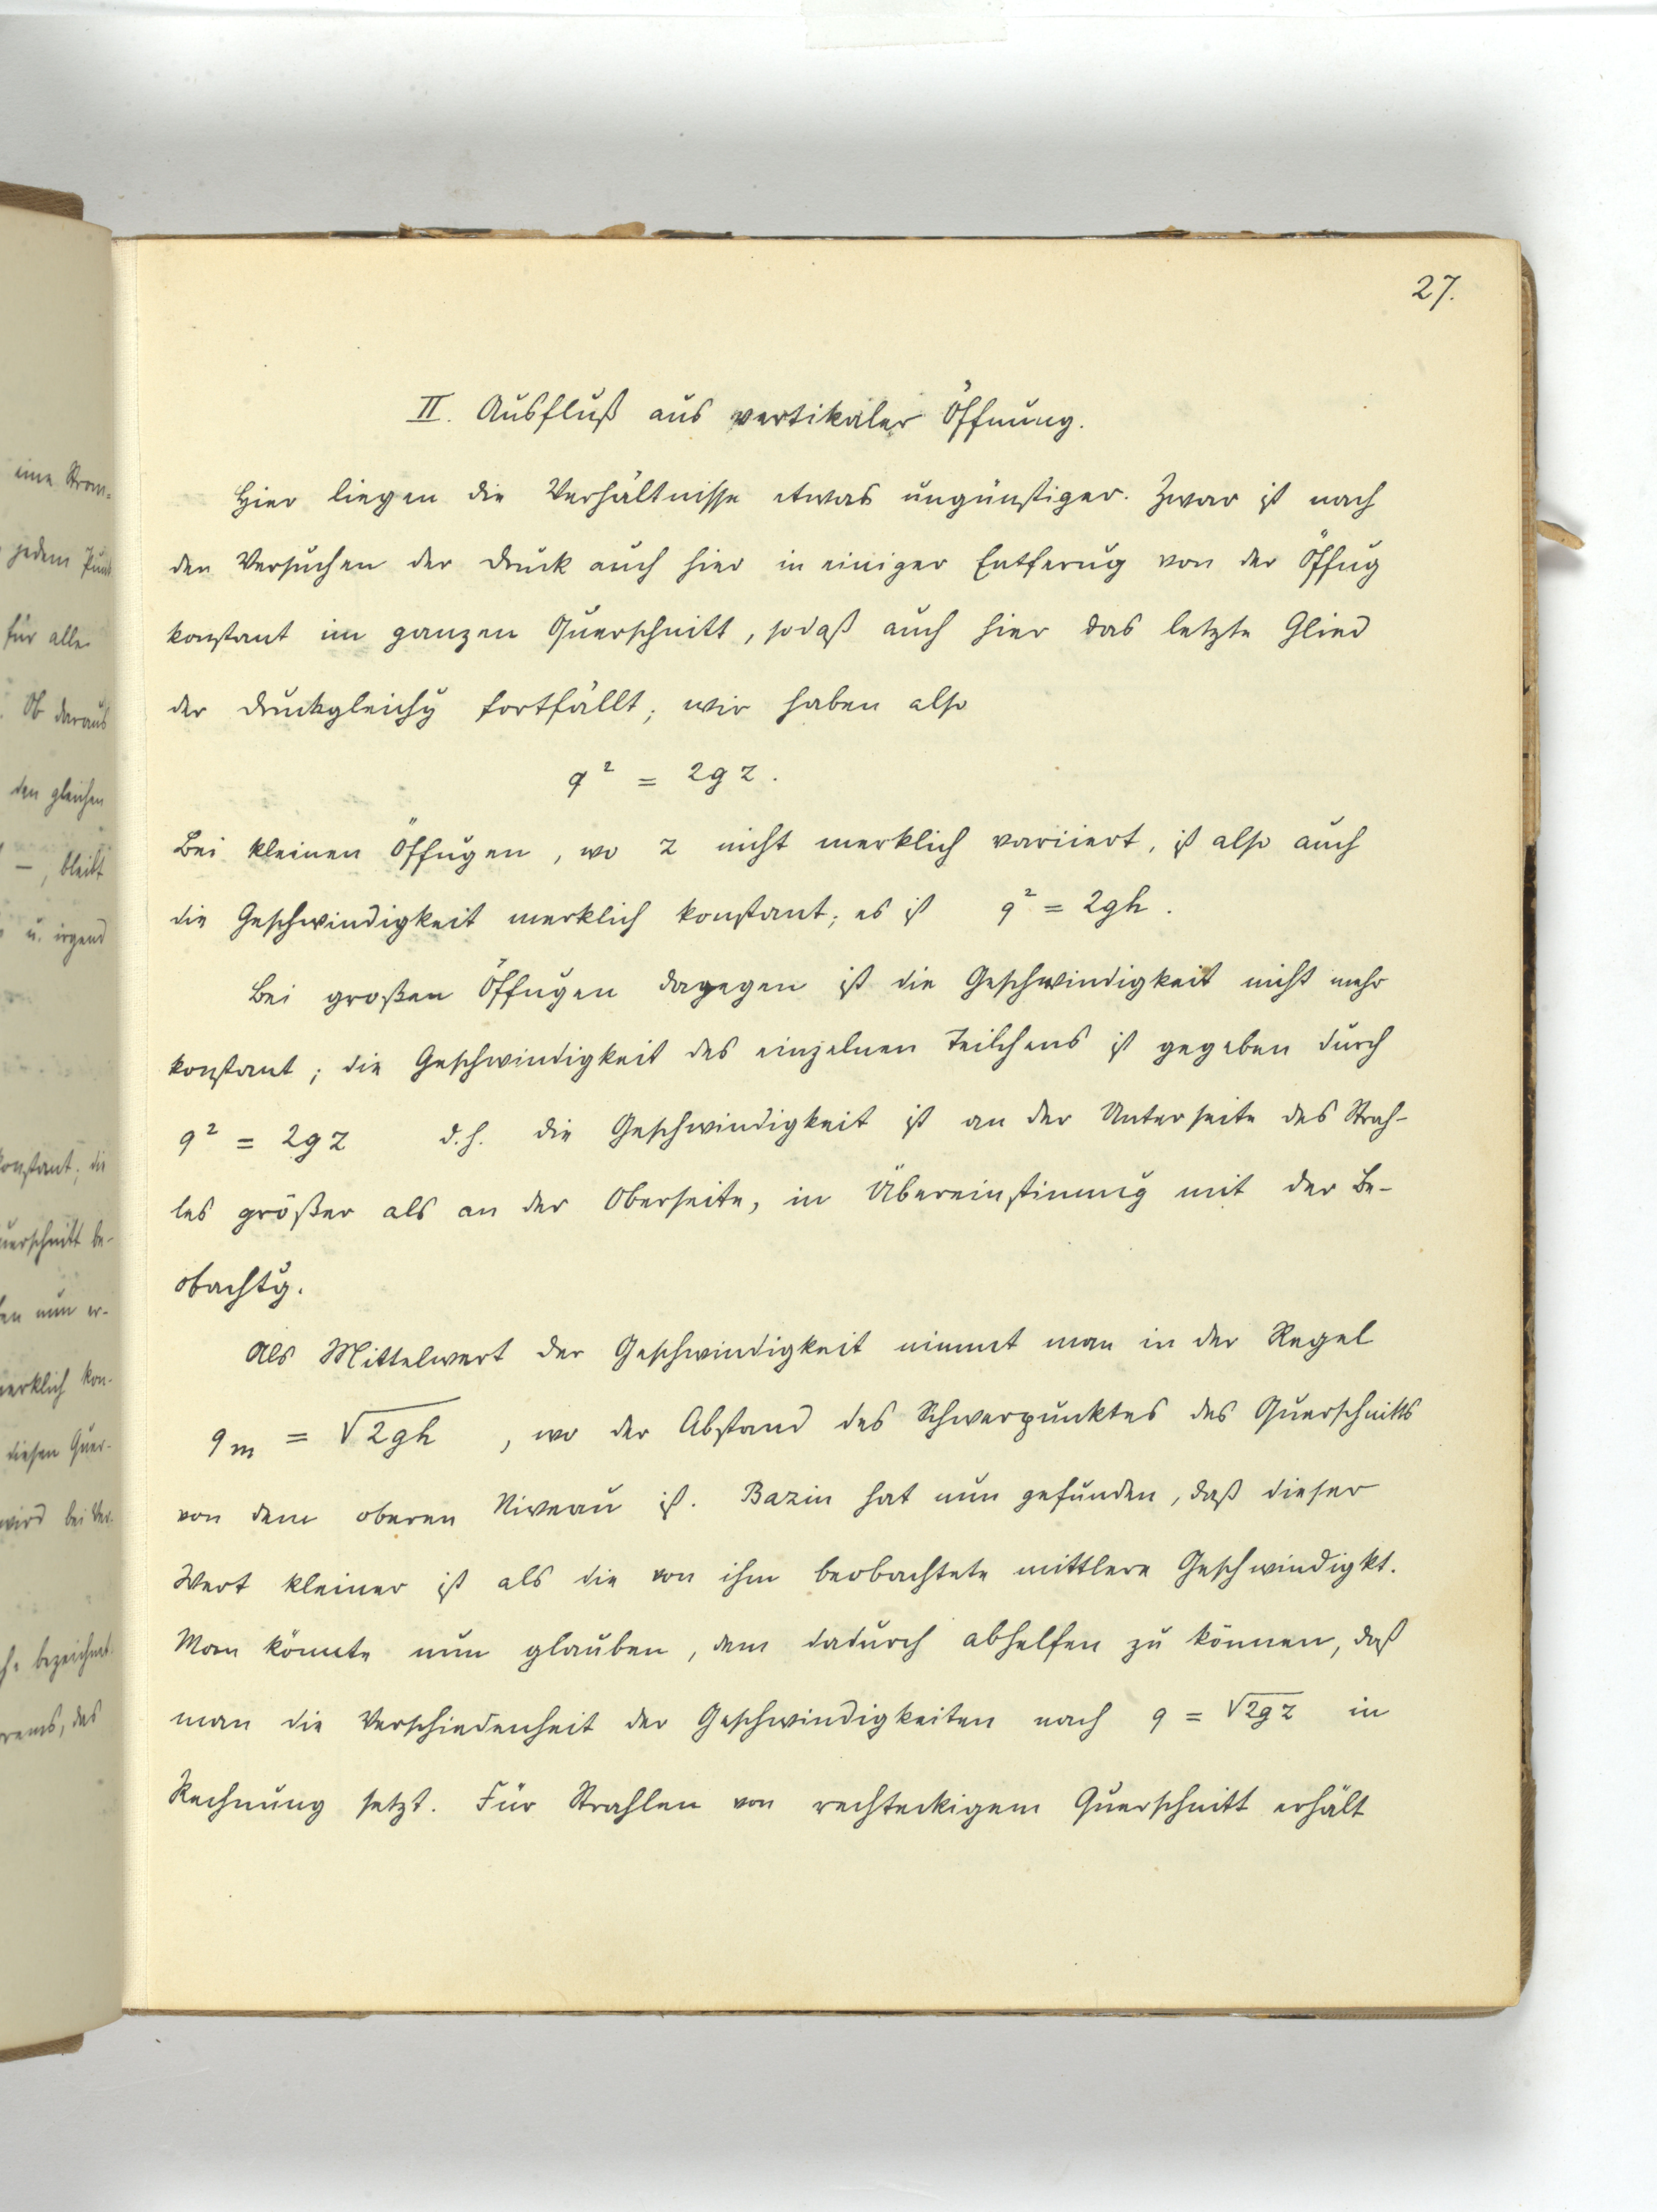 27.
II. Ausfluß aus vertikaler Öffnung.
Hier liegen die Verhältnisse etwas ungünstiger. Zwar ist nach
den Versuchen der Druck auch hier in einiger Entferug von der Öffug
konstant im ganzen Querschnitt, sodaß auch hier das letzte Glied
der Druckgleichg fortfällt; wir haben also
q² = 2gz.
Bei kleinen Öffugen, wo z nicht merklich variiert, ist also auch
die Geschwindigkeit merklich konstant; es ist q² = 2gh.
Bei großen Öffugen dagegen ist die Geschwindigkeit nicht mehr
konstant; die Geschwindigkeit des einzelnen Teilchens ist gegeben durch
q² = 2gz d.h. die Geschwindigkeit ist an der Unterseite des Strah-
les größer als an der Oberseite, in Übereinstimmg mit der Be-
obachtg.
Als Mittelwert der Geschwindigkeit nimmt man in der Regel
qm = √2gh, wo der Abstand des Schwerpunktes des Querschnitts
von dem oberen Niveau ist. Bazin hat nun gefunden, daß dieser
Wert kleiner ist als die von ihm beobachtete mittlere Geschwindigkt.
Man könnte nun glauben, dem dadurch abhelfen zu können, daß
man die Verschiedenheit der Geschwindigkeiten nach q = √2gz in
Rechnung setzt. Für Strahlen von rechteckigem Querschnitt erhält
eine Strom-
jedem Punk
für alle
Ob daraus
den gleichen
–, bleibt
u. irgend
konstant; die
uerschnitt be-
en nun er-
merklich kon-
diesen Quer-
wird bei Ver-
bezeichnet
rems, das